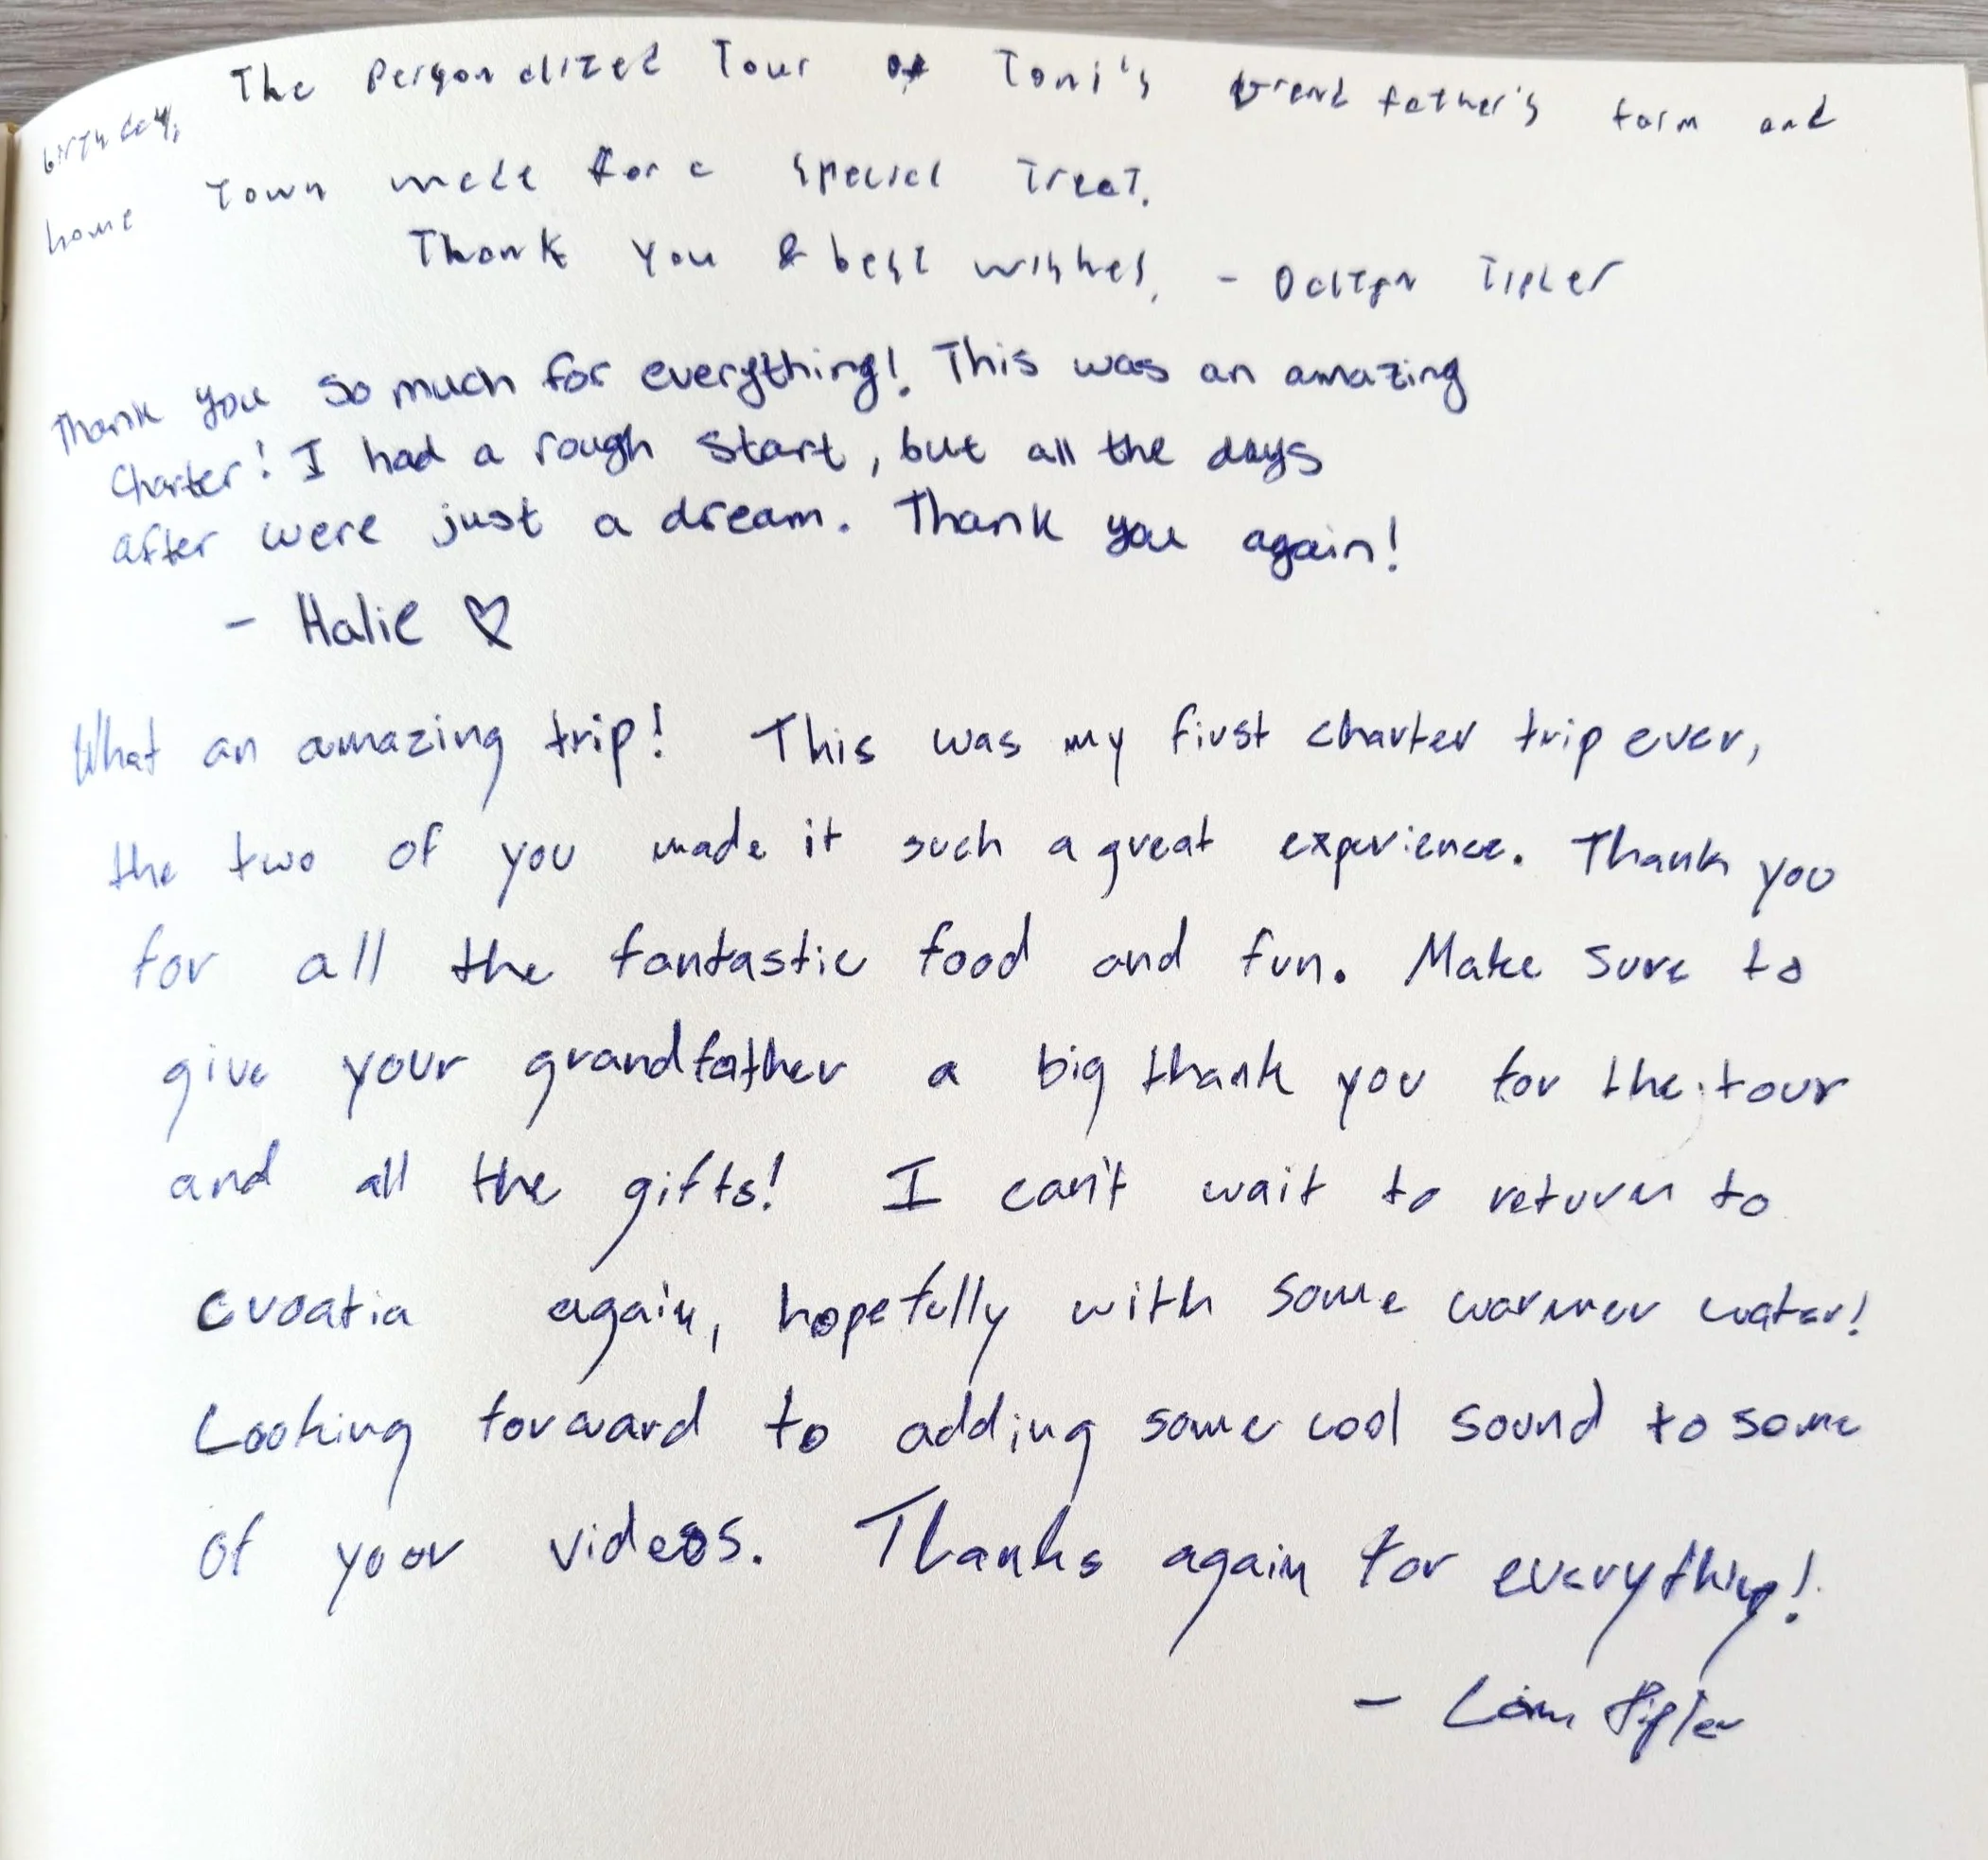 birthday, The Personalized Tour of Toni's Grand father's farm and
home Town made for a special Treat.
Thank You & best wishes, - Dalton Tipler
Thank you so much for everything! This was an amazing
Charter! I had a rough start, but all the days
after were just a dream. Thank you again!
- Halie ♡
What an amazing trip! This was my first charter trip ever,
the two of you made it such a great experience. Thank you
for all the fantastic food and fun. Make sure to
give your grandfather a big thank you for the tour
and all the gifts! I can't wait to return to
Croatia again, hopefully with some warmer water!
Looking forward to adding some cool sound to some
of your videos. Thanks again for everything!
- Liam Tipler